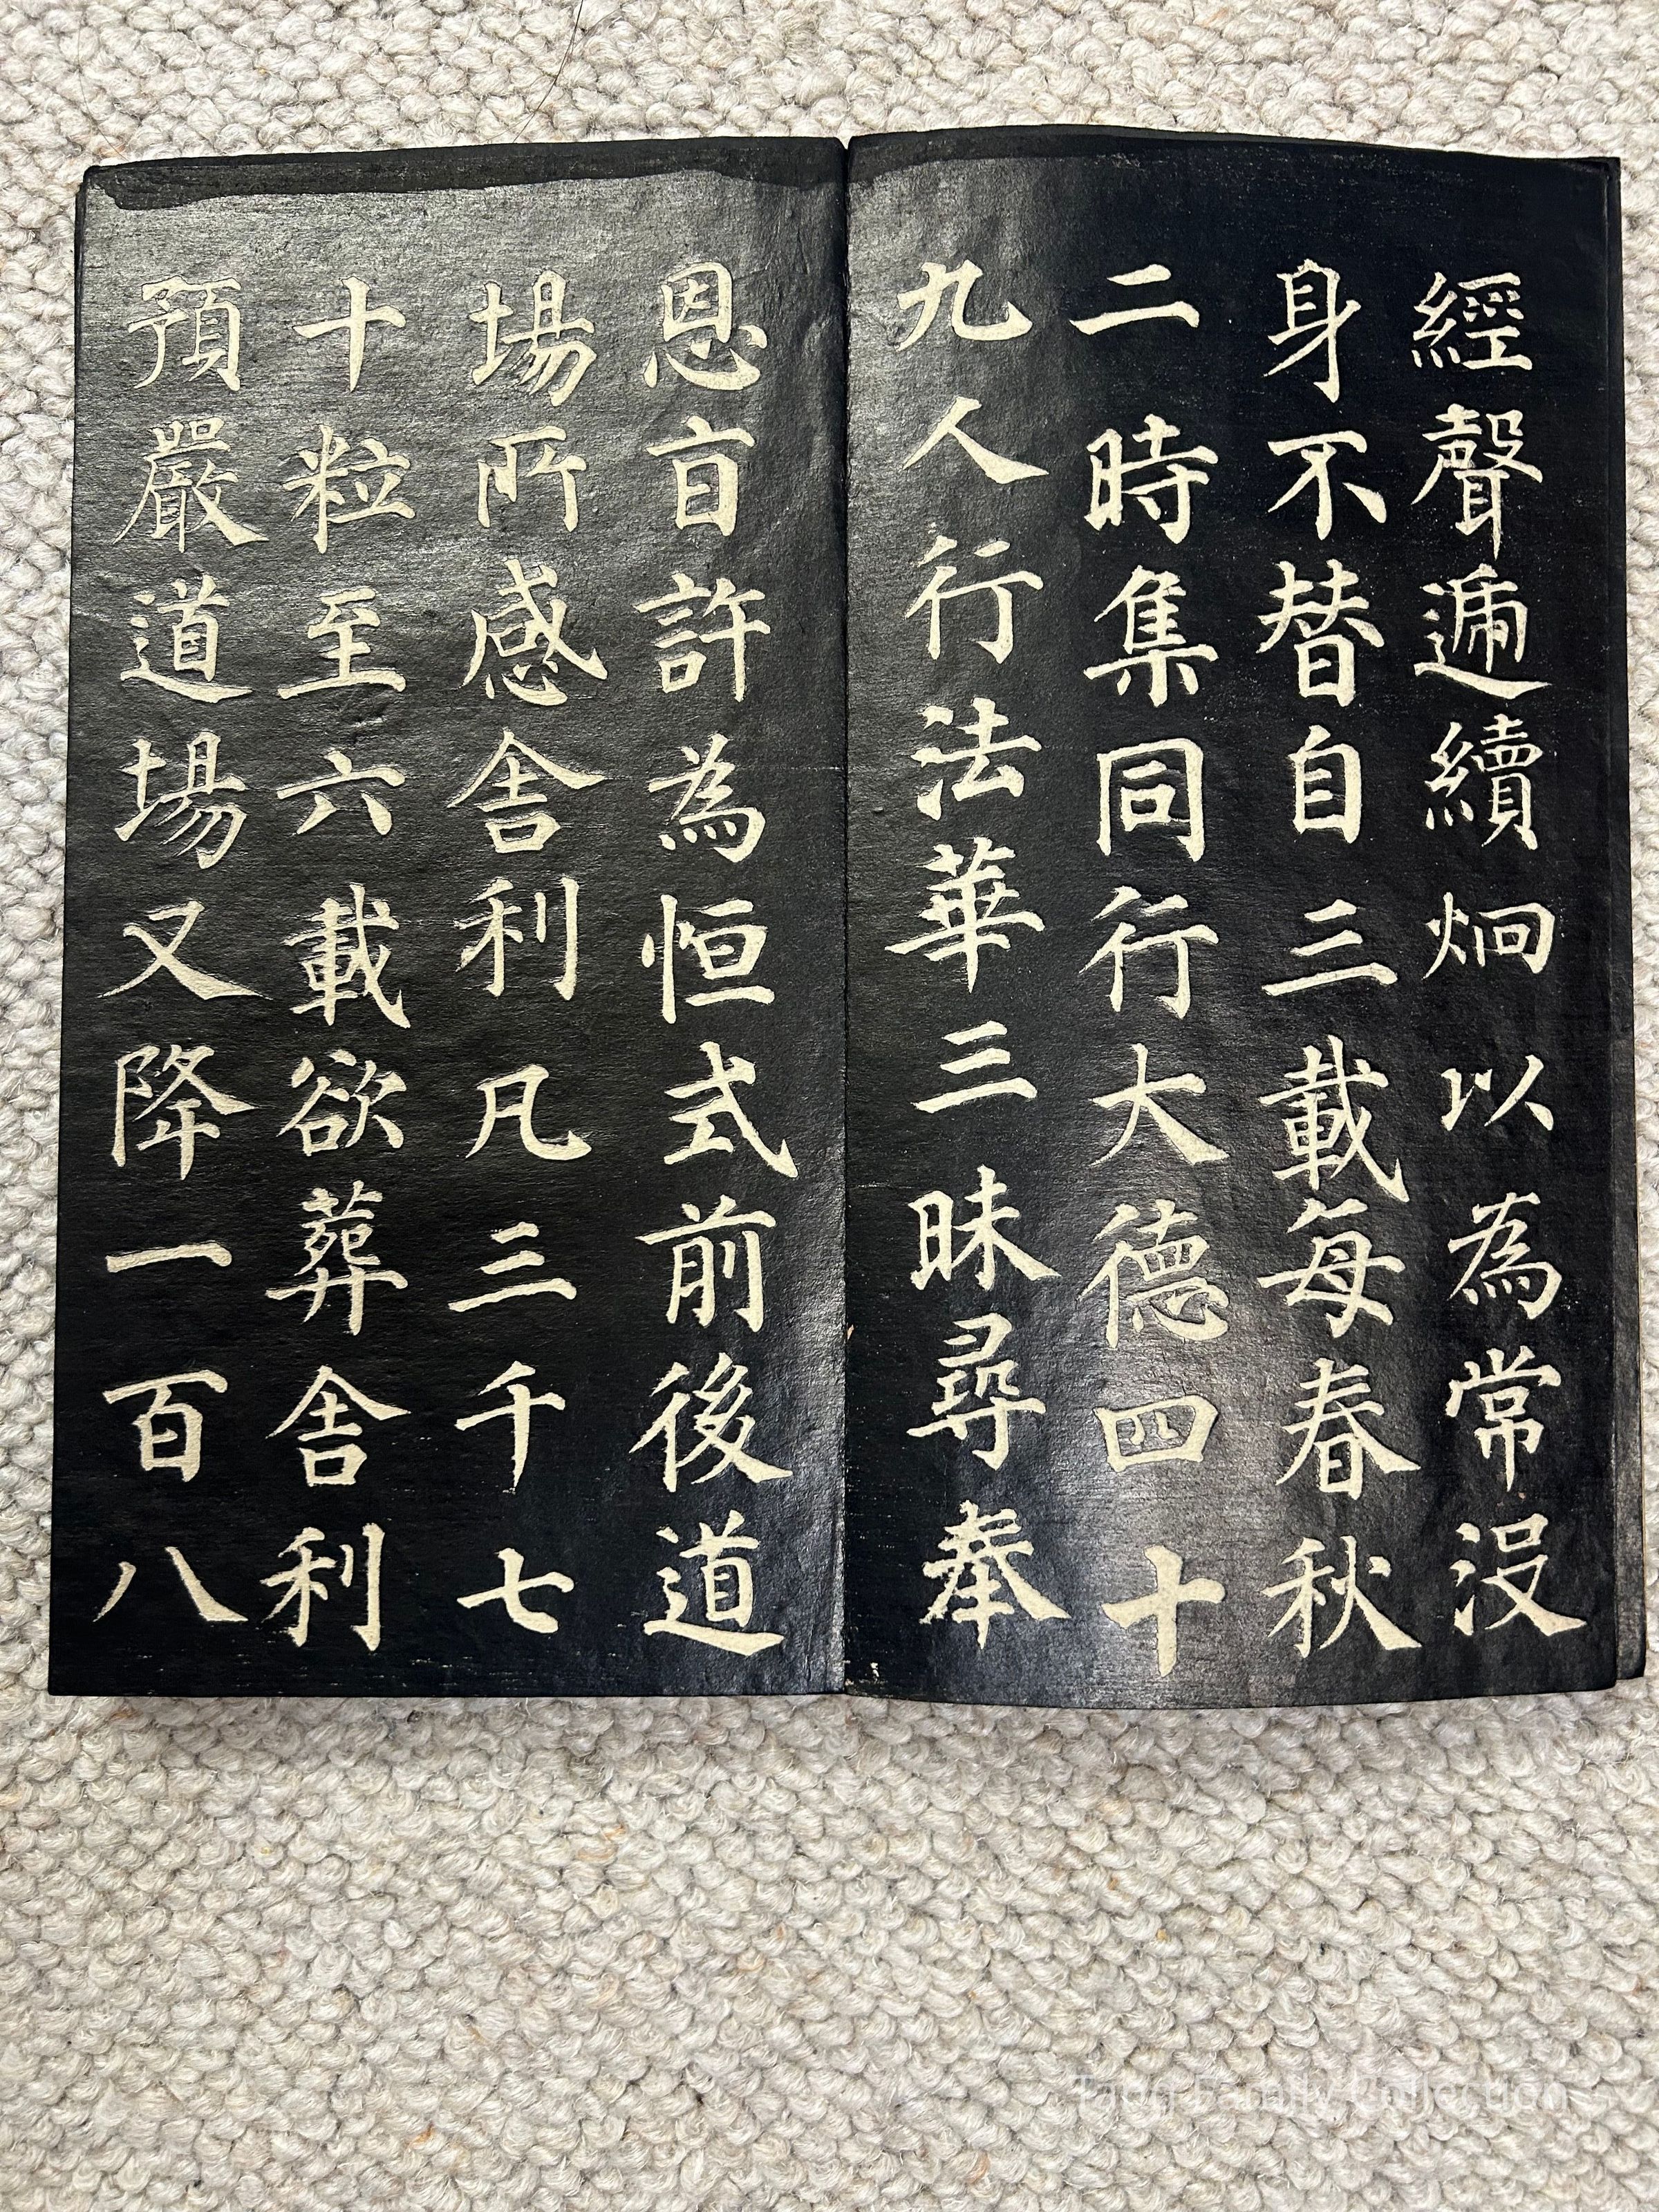 經聲遞續炯以為常没
身不替自三載每春秋
二時集同行大德四十
九人行法華三昧尋奉
恩㫖許為恒式前後道
場所感舍利凡三千七
十粒至六載欲葬舍利
預嚴道場又降一百八
Tang Family Collection